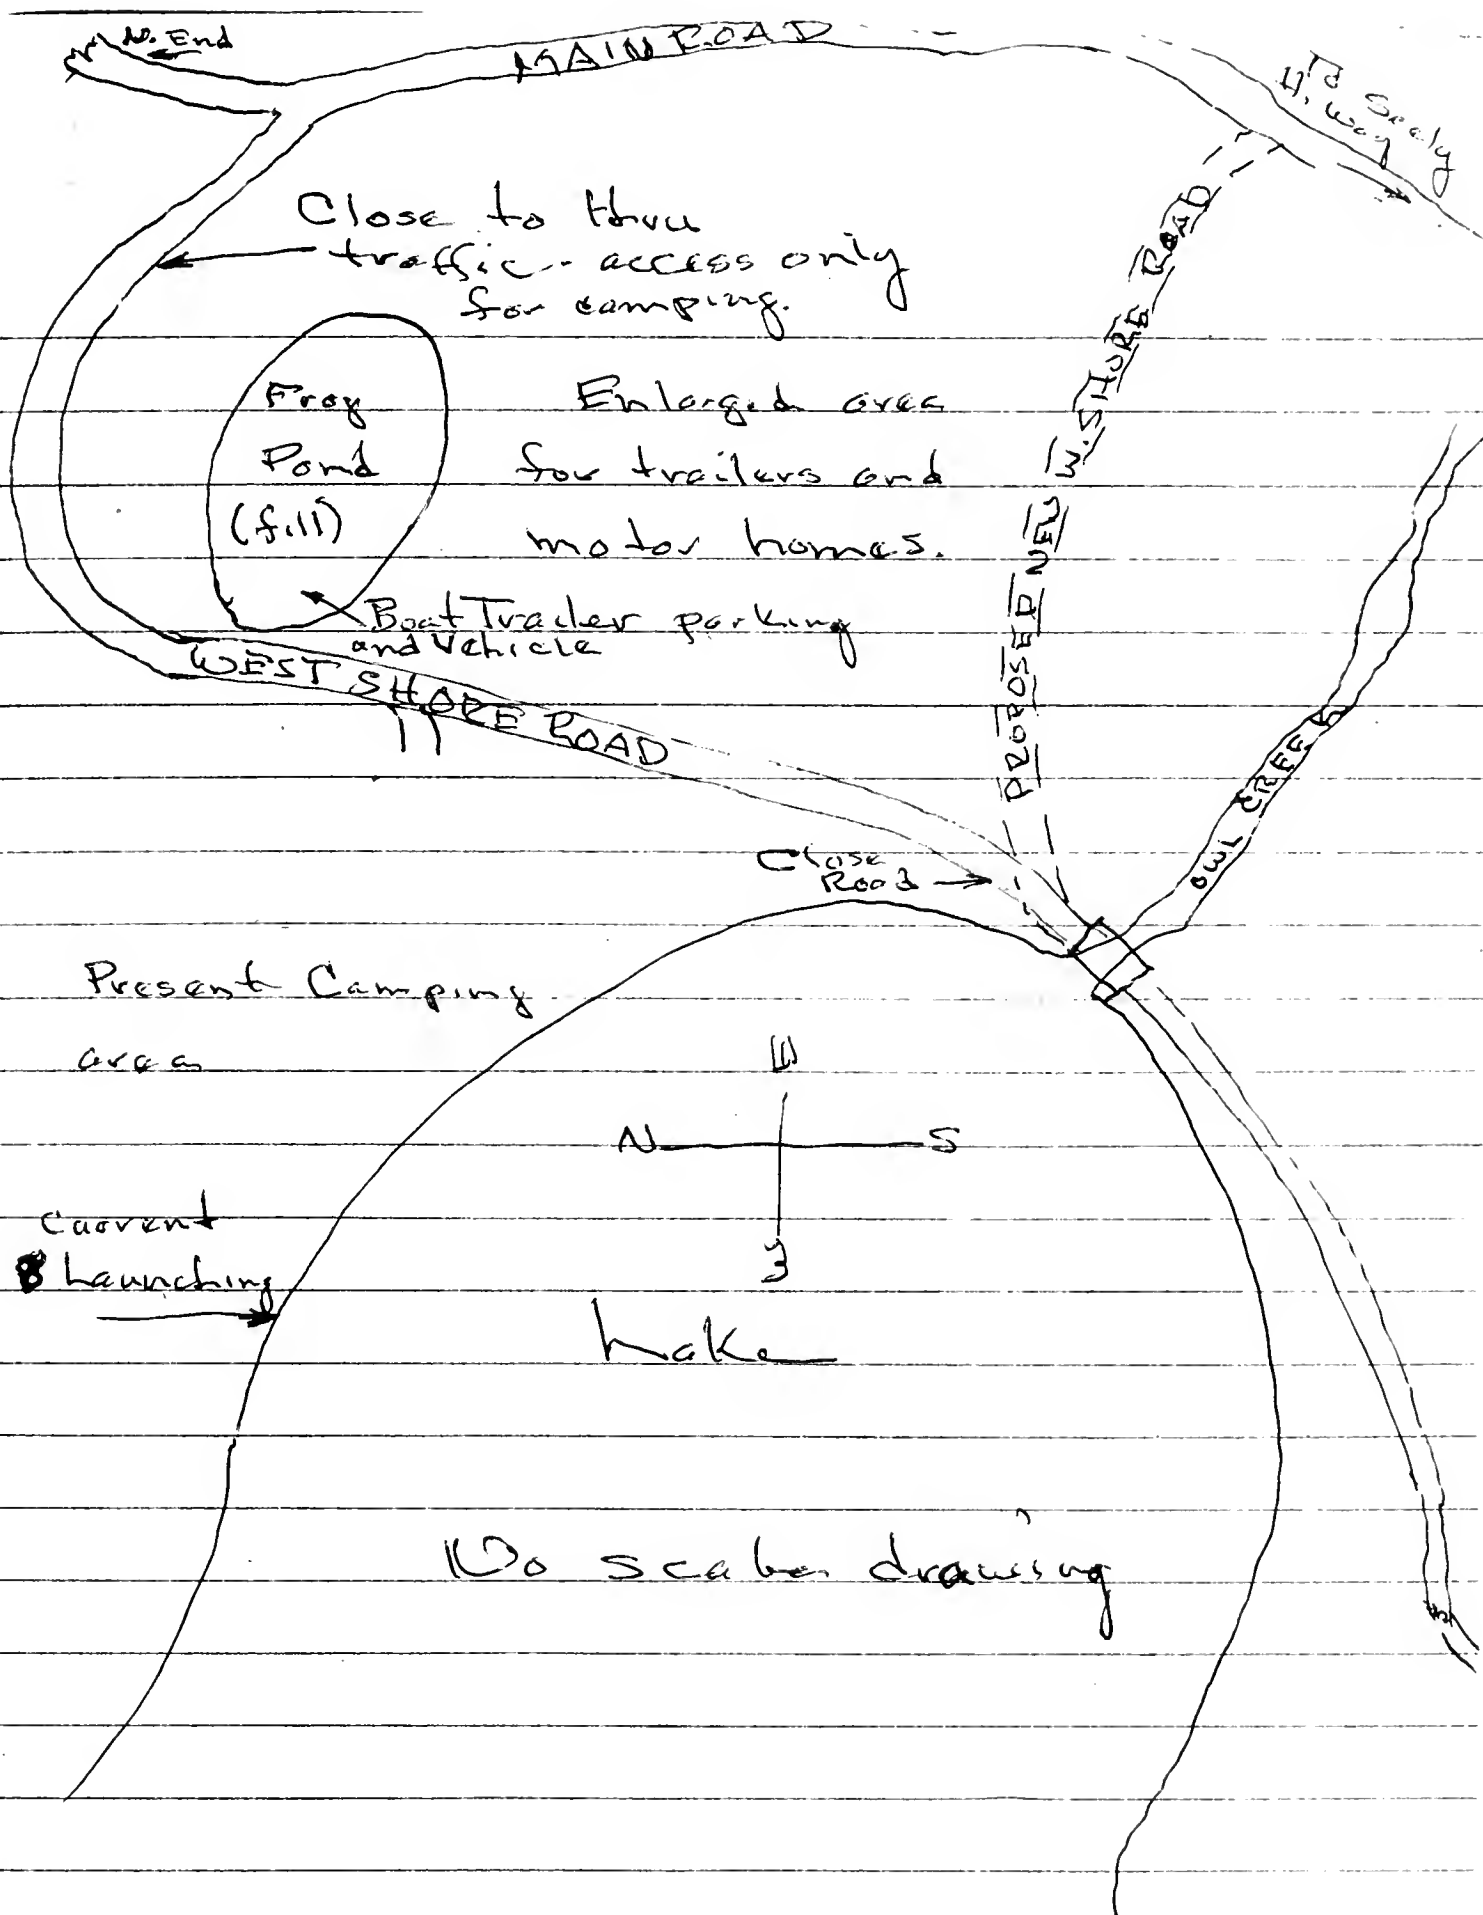 N. End
MAIN ROAD
To Seely
H. Way
Close to thru
traffic - access only
for camping.
Frog
Pond
(fill)
Enlarged area
for trailers and
motor homes.
Boat Trailer parking
and Vehicle
WEST SHORE ROAD
PROPOSED NEW W. SHORE ROAD
OWL CREEK
Close
Road
Present Camping
area
N
S
Current
Launching
Lake
No scale drawing